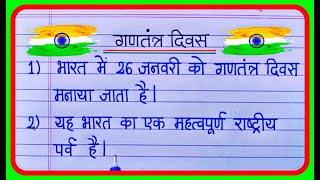 गणतंत्र दिवस
1) भारत में 26 जनवरी को गणतंत्र दिवस
मनाया जाता है।
2) यह भारत का एक महत्वपूर्ण राष्ट्रीय
पर्व है।